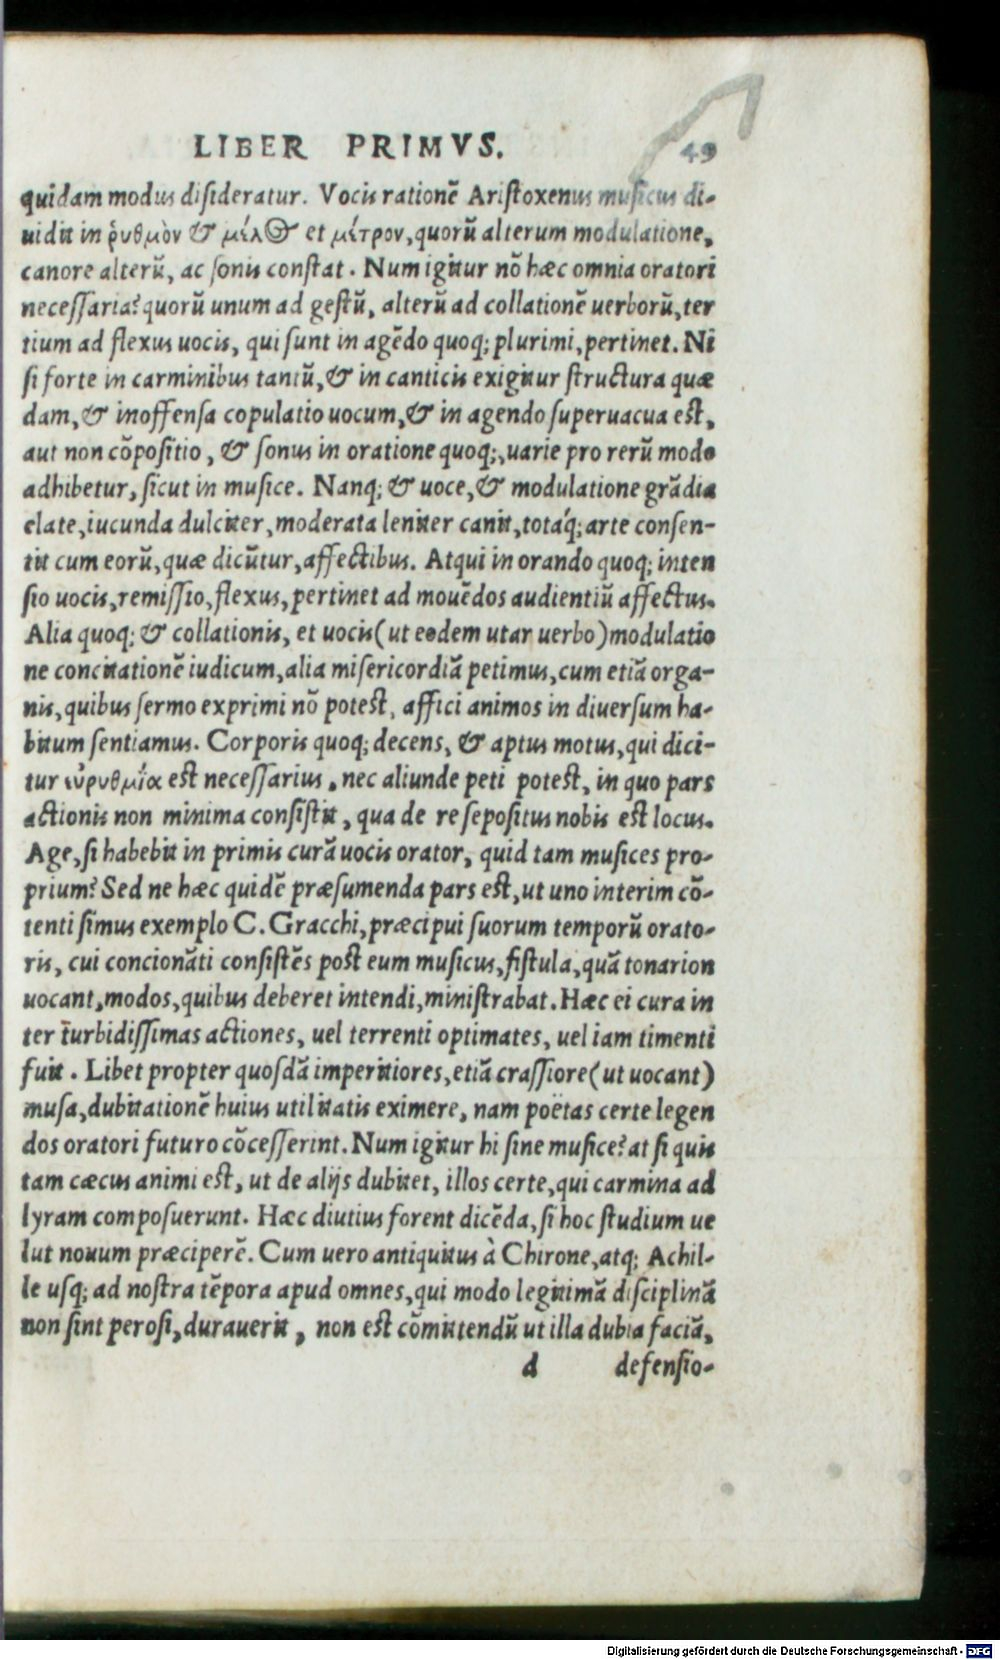 LIBER PRIMVS. 49
quidam modus disideratur. Vocis rationē Aristoxenus musicus di-
uidit in ῥυθμὸν & μέλος et μέτρον, quorū alterum modulatione,
canore alterū, ac sonis constat. Num igitur nō hæc omnia oratori
necessaria? quorū unum ad gestū, alterū ad collationē uerborū, ter
tium ad flexus uocis, qui sunt in agēdo quoq; plurimi, pertinet. Ni
si forte in carminibus tantū, & in canticis exigitur structura quæ
dam, & inoffensa copulatio uocum, & in agendo superuacua est,
aut non cōpositio, & sonus in oratione quoq;, uarie pro rerū modo
adhibetur, sicut in musice. Nanq; & uoce, & modulatione grādia
elate, iucunda dulciter, moderata leniter canit, totáq; arte consen-
tit cum eorū, quæ dicūtur, affectibus. Atqui in orando quoq; inten
sio uocis, remissio, flexus, pertinet ad mouēdos audientiū affectus.
Alia quoq; & collationis, et uocis (ut eodem utar uerbo) modulatio
ne concitationē iudicum, alia misericordiā petimus, cum etiā orga-
nis, quibus sermo exprimi nō potest, affici animos in diuersum ha-
bitum sentiamus. Corporis quoq; decens, & aptus motus, qui dici-
tur εὐρυθμία est necessarius, nec aliunde peti potest, in quo pars
actionis non minima consistit, qua de re sepositus nobis est locus.
Age, si habebit in primis curā uocis orator, quid tam musices pro-
prium? Sed ne hæc quidē præsumenda pars est, ut uno interim cō-
tenti simus exemplo C. Gracchi, præcipui suorum temporū orato-
ris, cui concionāti consistēs post eum musicus, fistula, quā tonarion
uocant, modos, quibus deberet intendi, ministrabat. Hæc ei cura in
ter turbidissimas actiones, uel terrenti optimates, uel iam timenti
fuit. Libet propter quosdā imperitiores, etiā crassiore (ut uocant)
musa, dubitationē huius utilitatis eximere, nam poëtas certe legen
dos oratori futuro cōcesserint. Num igitur hi sine musice? at si quis
tam cæcus animi est, ut de alijs dubitet, illos certe, qui carmina ad
lyram composuerunt. Hæc diutius forent dicēda, si hoc studium ue
lut nouum præciperē. Cum uero antiquitus à Chirone, atq; Achil-
le usq; ad nostra tēpora apud omnes, qui modo legitimā disciplinā
non sint perosi, durauerit, non est cōmittendū ut illa dubia faciā,
d defensio-
Digitalisierung gefördert durch die Deutsche Forschungsgemeinschaft - DFG